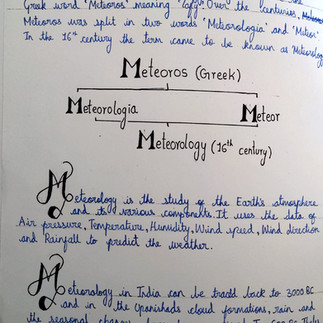 Greek word 'Meteoros' meaning 'lofty'. Over the centuries,
Meteoros was split in two words 'Meteorologia' and 'Meteor'.
In the 16th century the term came to be known as 'Meteorology
Meteoros (Greek)
Meteorologia Meteor
Meteorology (16th century)
Meteorology is the study of the Earth's atmosphere
and its various components. It uses the data of
Air pressure, Temperature, Humidity, Wind speed, Wind direction
and Rainfall to predict the weather.
Meteorology in India can be traced back to 3000 BC
and in the Upanishads cloud formations, rain and
the seasonal